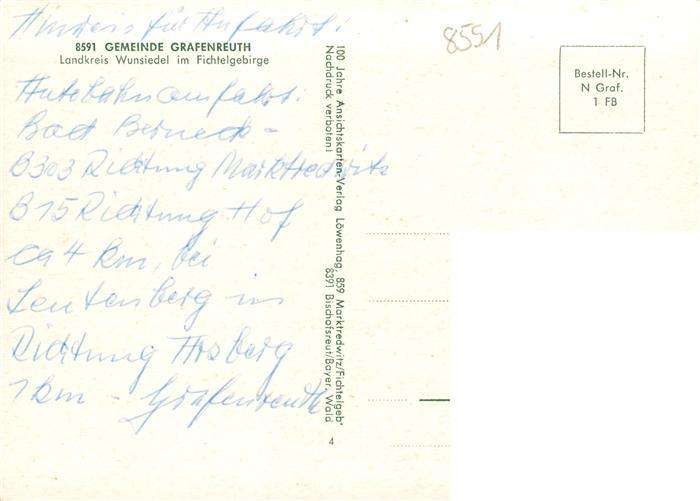 Hinweis für Anfahrt:
8591 GEMEINDE GRAFENREUTH
Landkreis Wunsiedel im Fichtelgebirge
Autobahnausfahrt:
Bad Berneck -
B303 Richtung Marktredwitz
B15 Richtung Hof
ca 4 km, bei
Seußenberg in
Richtung Arzberg
1 km - Grafenreuth
100 Jahre Ansichtskarten-Verlag Löwenhag, 859 Marktredwitz/Fichtelgeb.
Nachdruck verboten! 8391 Bischofsreut/Bayer. Wald
4
8551
Bestell-Nr.
N Graf.
1 FB